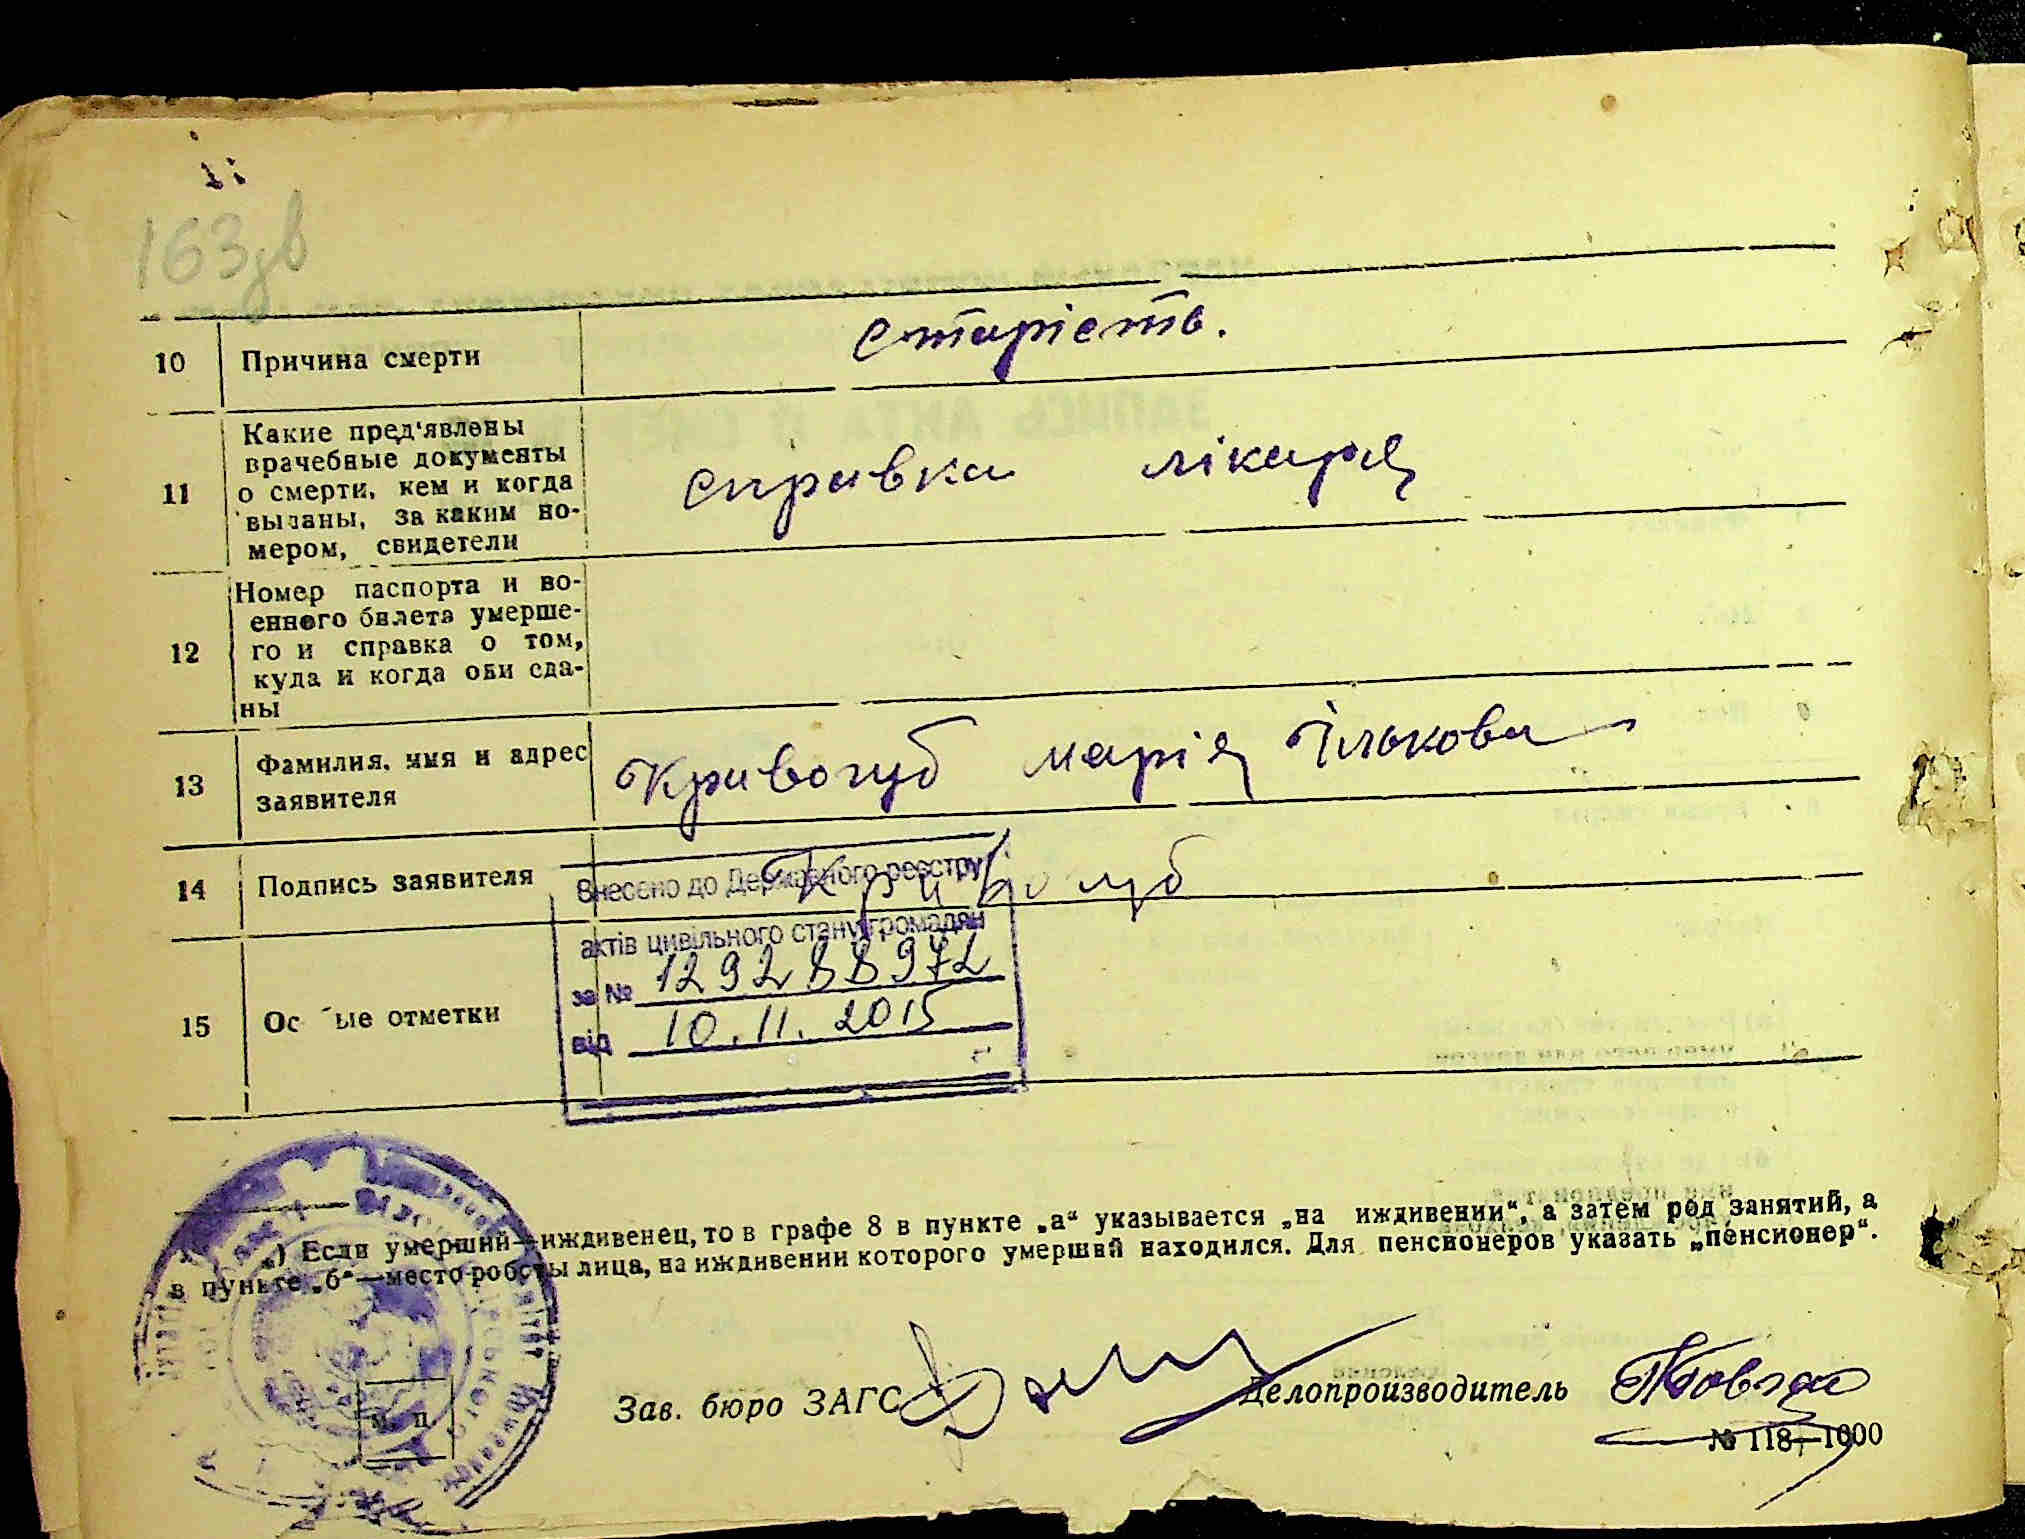 163зв
10 Причина смерти старість.
11 Какие пред'явлены
врачебные документы
о смерти, кем и когда
выданы, за каким но-
мером, свидетели
справка лікаря
12 Номер паспорта и во-
енного билета умерше-
го и справка о том,
куда и когда они сда-
ны
13 Фамилия, имя и адрес
заявителя
Кривогуб Марія Ількова
14 Подпись заявителя Кривогуб
Внесено до Державного реєстру
актів цивільного стану громадян
за № 12928897
від 10.11.2015
15 Ос ые отметки
) Если умерший—иждивенец, то в графе 8 в пункте „а“ указывается „на иждивении“, а затем род занятий, а
в пункте „б“—место роботы лица, на иждивении которого умерший находился. Для пенсионеров указать „пенсионер“.
м. п
Зав. бюро ЗАГС
Делопроизводитель
№ 118—1000